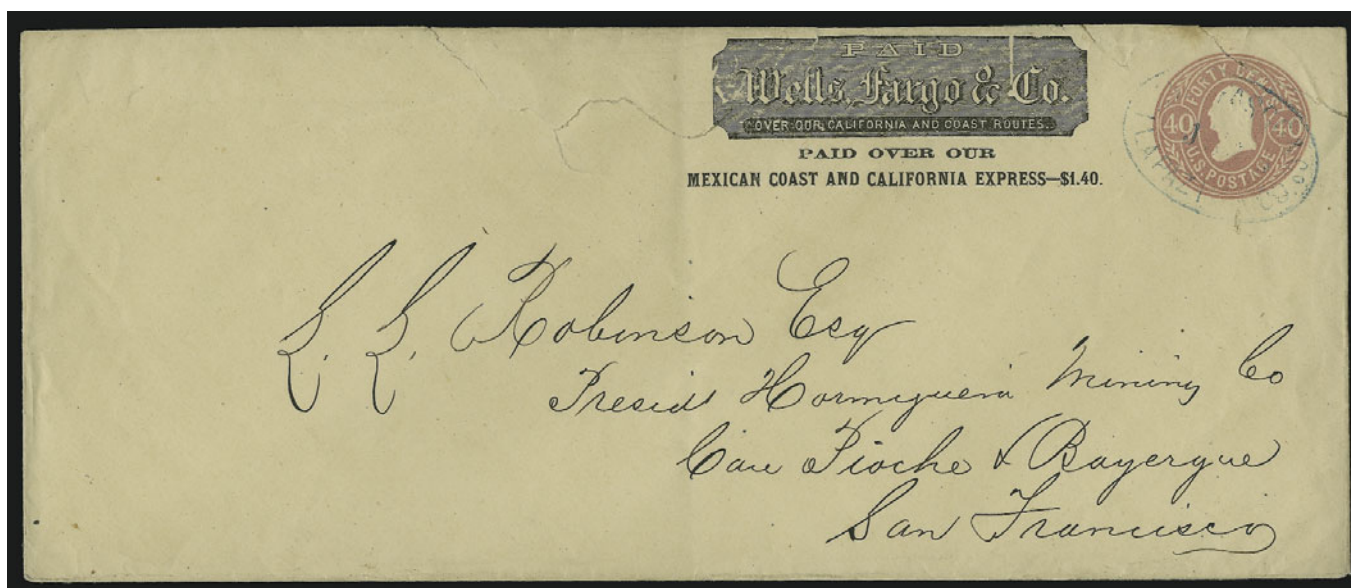 PAID
Wells, Fargo & Co.
OVER OUR CALIFORNIA AND COAST ROUTES.
PAID OVER OUR
MEXICAN COAST AND CALIFORNIA EXPRESS—$1.40.
FORTY
40 40
U.S. POSTAGE
L. L. Robinson Esq
Presid Hormiguera Mining Co
Care Pioche & Bayerque
San Francisco